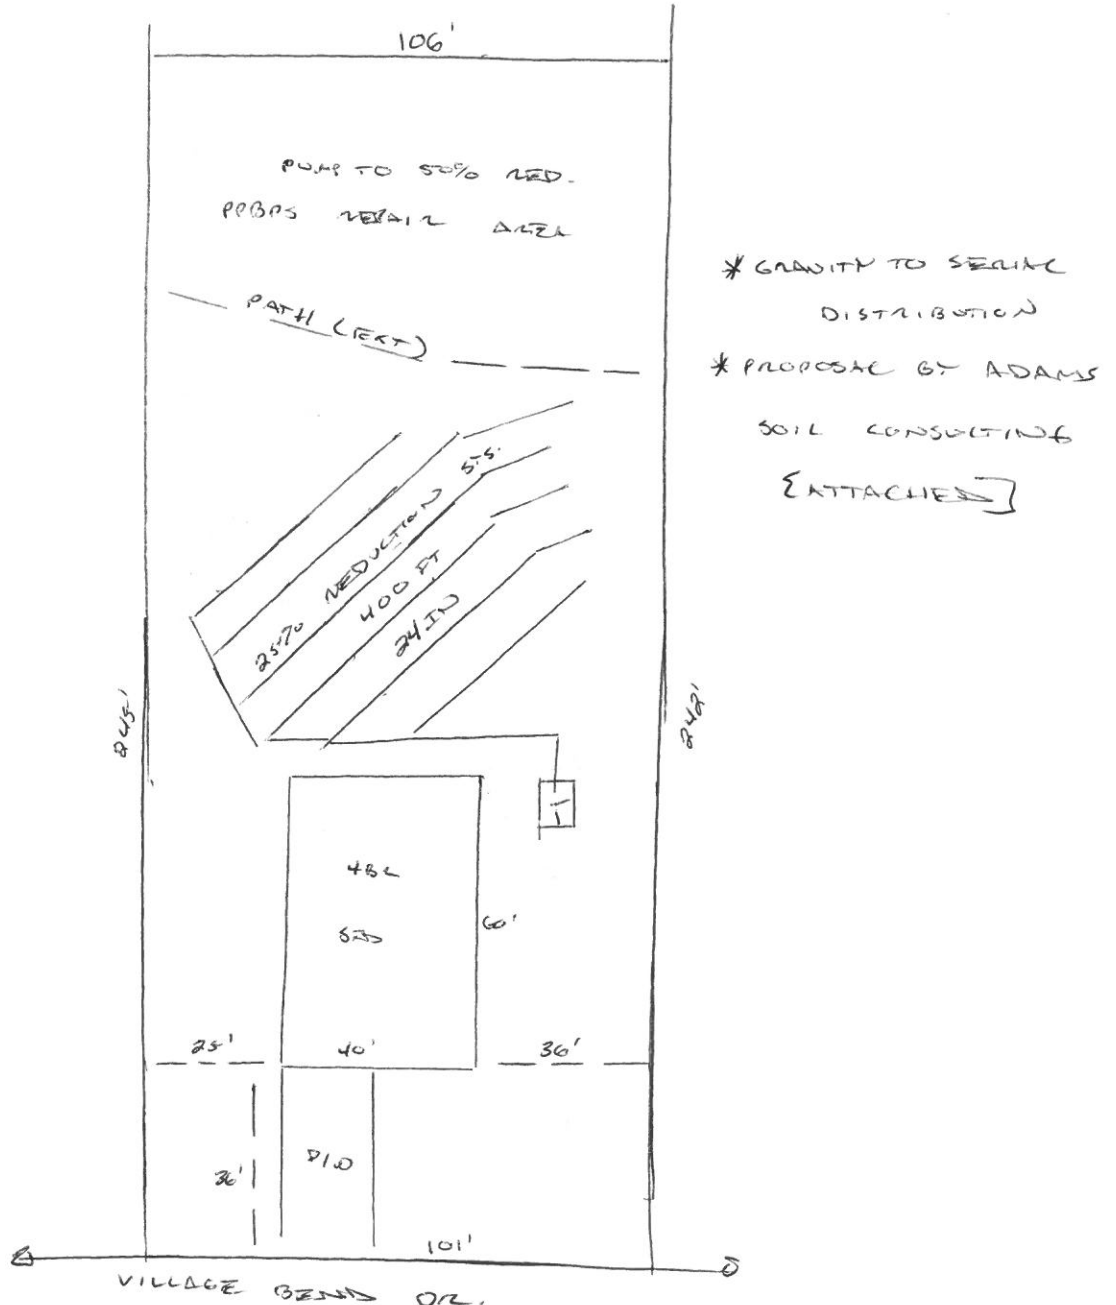 106'
PUMP TO 50% RED.
PPBPS REPAIR AREA
PATH (EXT)
* GRAVITY TO SERIAL
DISTRIBUTION
* PROPOSAL BY ADAMS
SOIL CONSULTING
[ATTACHED]
25% REDUCTION SYS.
400 FT
24 IN
245'
242'
T
4BR
SFD
60'
25'
40'
36'
36'
P/D
101'
VILLAGE BEND DR.